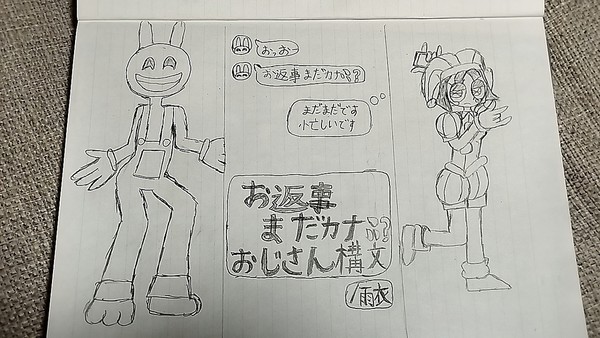 おっおー
お返事まだカナ??
まだまだです
忙しいです
お返事
まだカナ??
おじさん構文
/雨衣